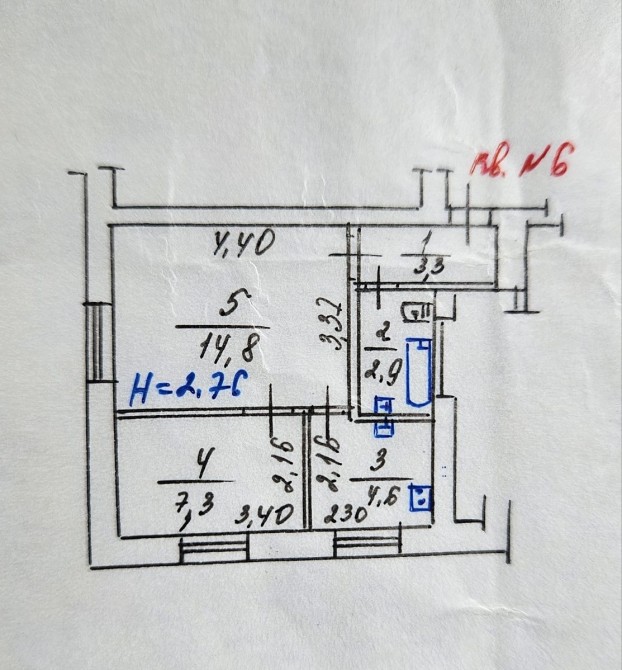 кв. №6
4,40
1
3,3
5
14,8
3,37
2
2,9
H=2,76
4
7,3
2,16
3,40
2,16
3
4,6
230